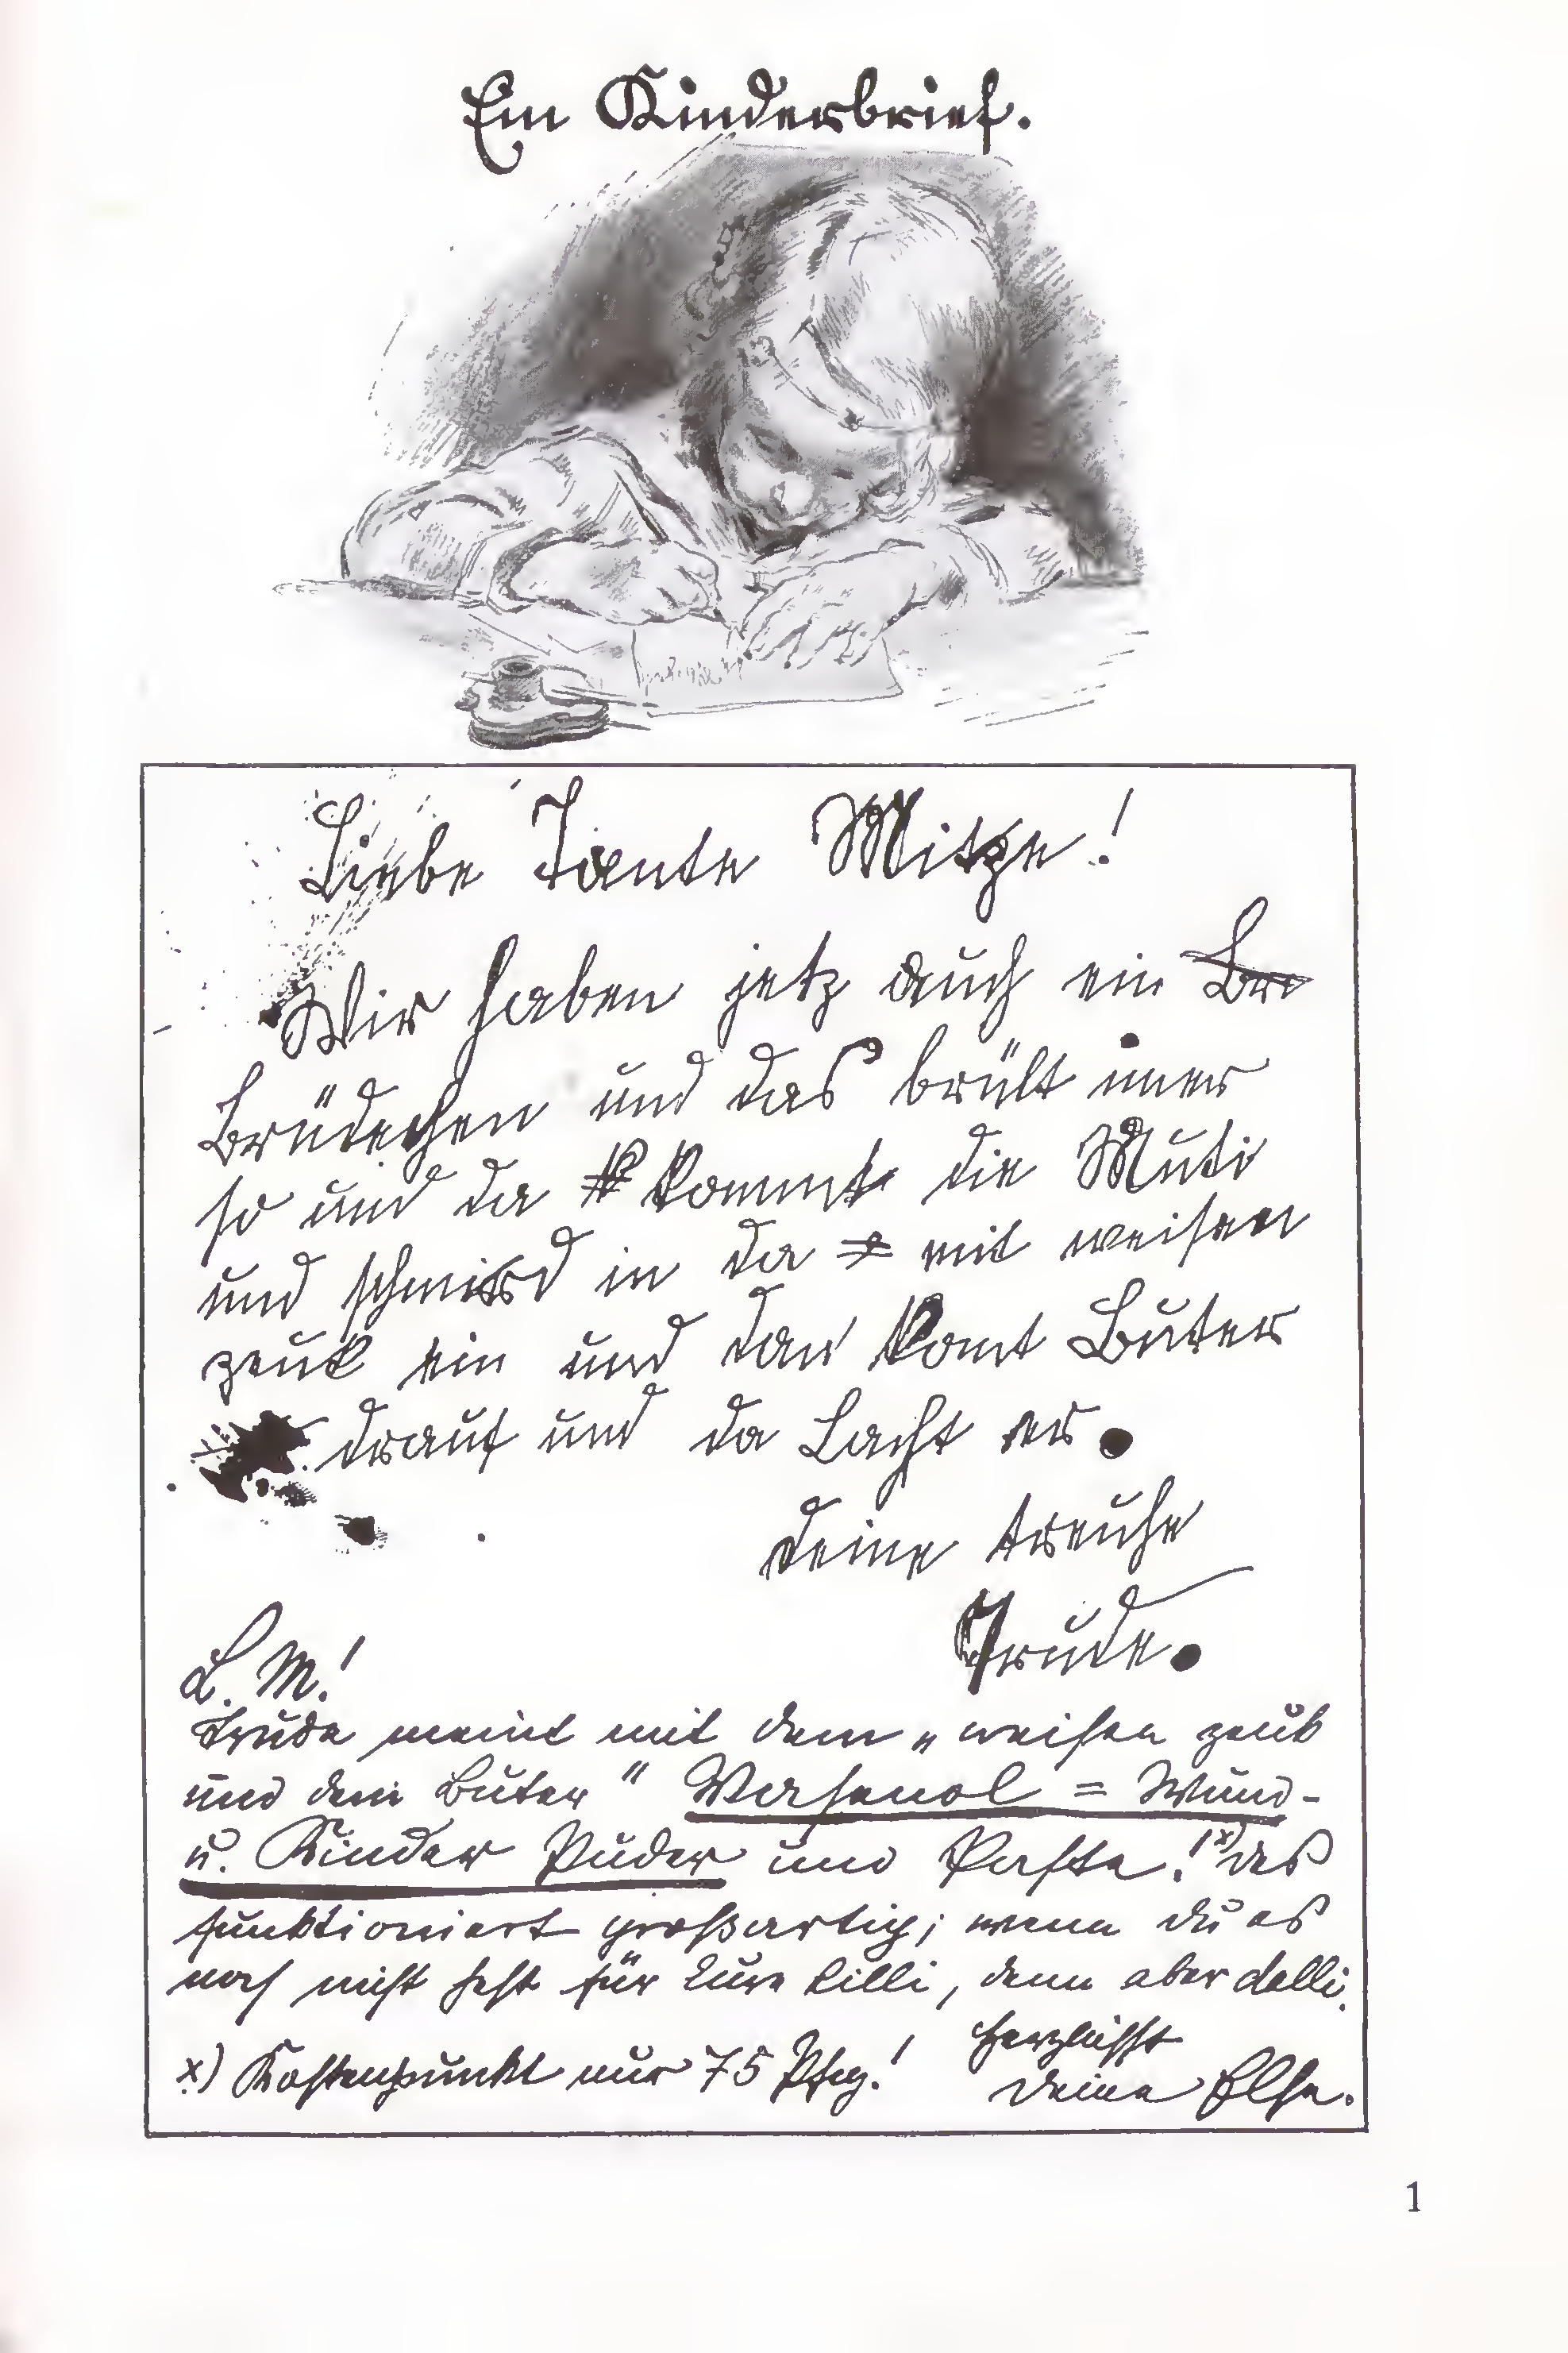 Ein Kinderbrief.
Liebe Tante Mitze!
Wir haben jetz auch ein Brr
Brüdechen und das brült imer
so und da k kommt die Muti
und schmird in da mit weisen
zeuk ein und dan komt Buter
drauf und da Lacht er.
deine treuhe
Trude.
L. M!
Trude meint mit dem „weisen zeuk
und dem Buter" Vasenol = Wund-
u. Kinder Puder und Paste! x) das
funktioniert großartig; wenn du es
noch nicht hast für Eure Lilli, dann aber dalli.
Herzlichst
x) Kostenpunkt nur 75 Pfg.!
Deine Else.
1